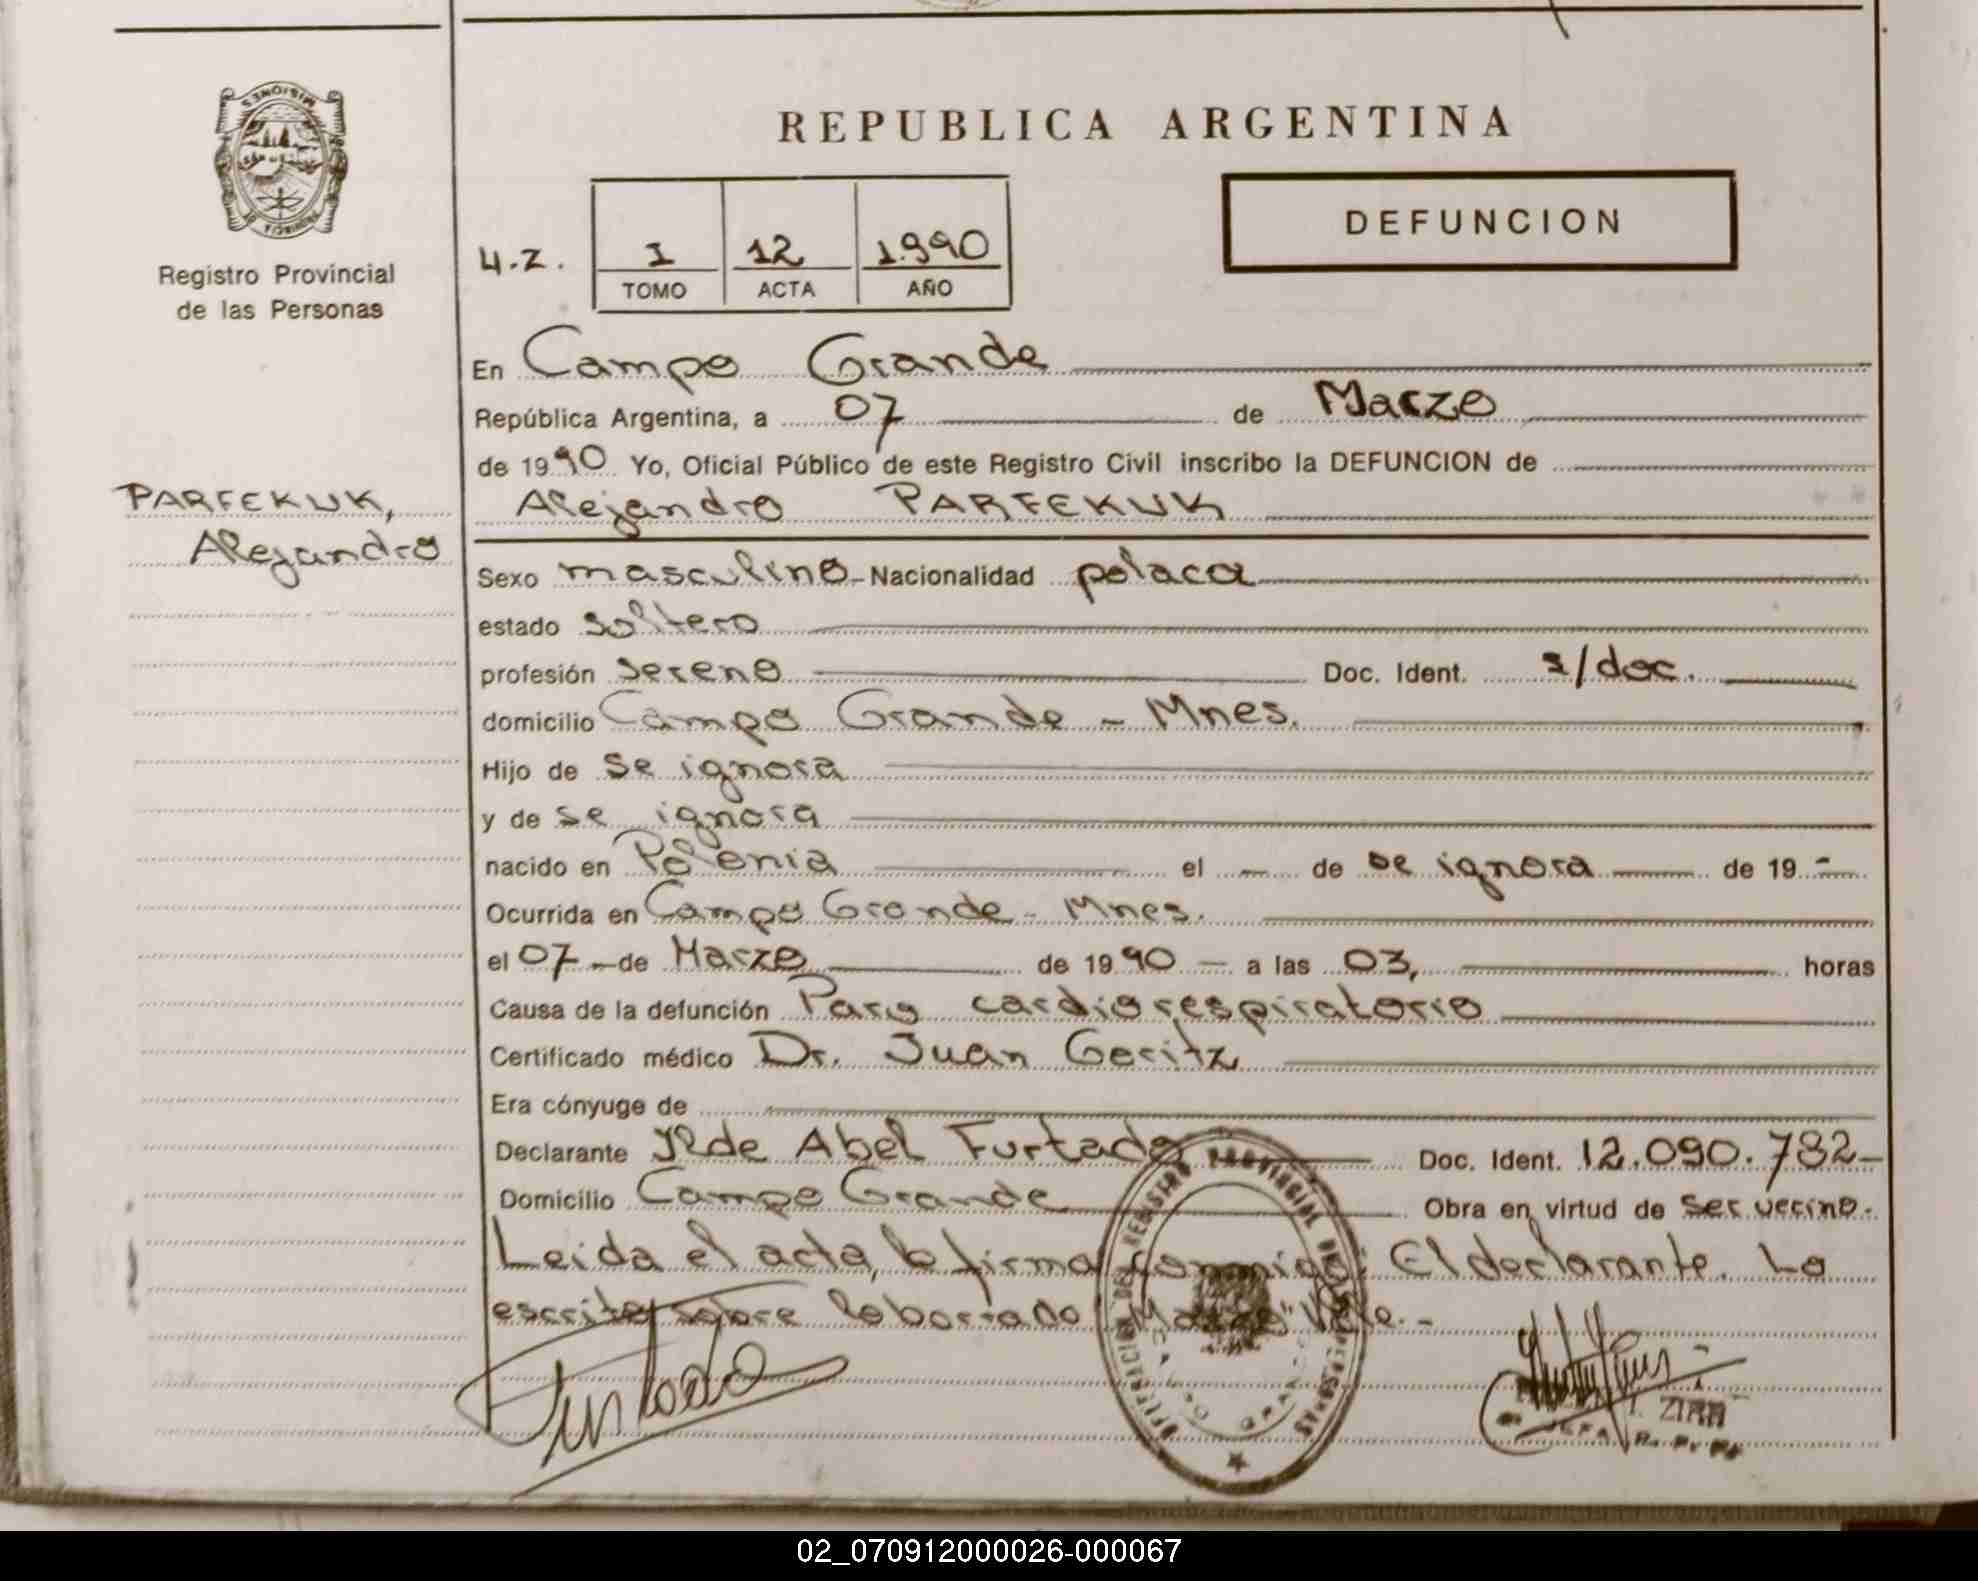 MISIONES
PROVINCIA DE
Registro Provincial
de las Personas
REPUBLICA ARGENTINA
DEFUNCION
U.Z. I 12 1.990
TOMO ACTA AÑO
En Campo Grande
República Argentina, a 07 de Marzo
de 1990 Yo, Oficial Público de este Registro Civil inscribo la DEFUNCION de
Alejandro PARFEKUK
PARFEKUK,
Alejandro
Sexo masculino - Nacionalidad polaca
estado soltero
profesión sereno Doc. Ident. s/doc.
domicilio Campo Grande - Mnes.
Hijo de se ignora
y de se ignora
nacido en Polonia el - de se ignora de 19 -
Ocurrida en Campo Grande - Mnes.
el 07 - de Marzo de 1990 - a las 03, horas
Causa de la defunción Paro cardiorespiratorio
Certificado médico Dr. Juan Geritz
Era cónyuge de
Declarante Ilde Abel Furtado Doc. Ident. 12.090.782-
Domicilio Campo Grande Obra en virtud de ser vecino.-
Leida el acta, la firma conmigo: El declarante. Lo
escrito sobre lo borrado "Marzo" Vale.-
Furtado
REGISTRO PROVINCIAL DE LAS PERSONAS
CAMPO GRANDE
ZIRR
JEFA R. P. P.
02_070912000026-000067